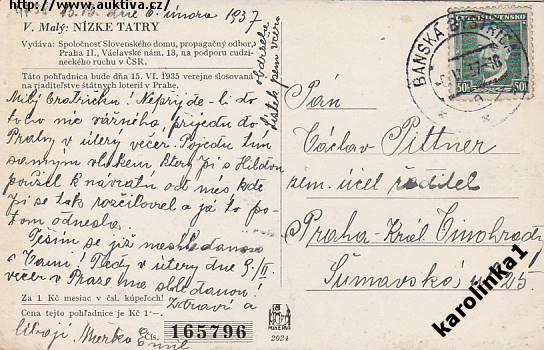 http://www.auktiva.cz/
13.15. dne 6. února 1937
V. Malý: NÍZKE TATRY
Vydáva: Spoločnosť Slovenského domu, propagačný odbor,
Praha II., Václavské nám. 13, na podporu cudzi-
neckého ruchu v ČSR.
Táto pohľadnica bude dňa 15. VI. 1935 verejne slosovaná
na riaditeľstve štátnych loterií v Prahe.
obdržela
lístek jsem včera
Milý bratříchu! Nepřijde-li do
toho nic vážného, přijedu do
Prahy v úterý večer. Pojedu tím
samým vlakem, který ji s Hildou
použil k návratu od nás, kde
ji se tak rozčiloval a já to po-
tom odnesla.
Těším se již na shledanou
s Vámi! Tedy v úterý dne 9./II.
večer v Praze na shledanou!
Zdraví a
líbají Mirka Emil
Za 1 Kč mesiac v čsl. kúpeľoch!
Cena tejto pohľadnice je Kč 1·—
Čís. 165796
MINERVA
2024
BANSKÁ BYSTRICA
ČESKOSLOVENSKO
50 50
Pán
Václav Pittner
zem. účet. ředitel
Praha-Král. Vinohrady
Šumavská ul. 25.
karolinka1